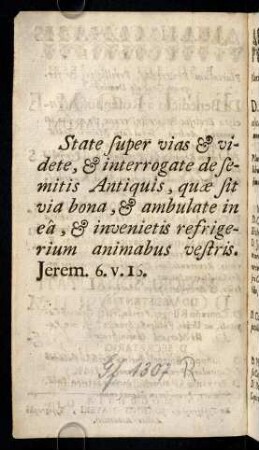 State super vias & vi-
dete, & interrogate de se-
mitis Antiquis, quæ sit
via bona, & ambulate in
eâ, & invenietis refrige-
rium animabus vestris.
Jerem. 6. v. 15.
Gf 1307 R